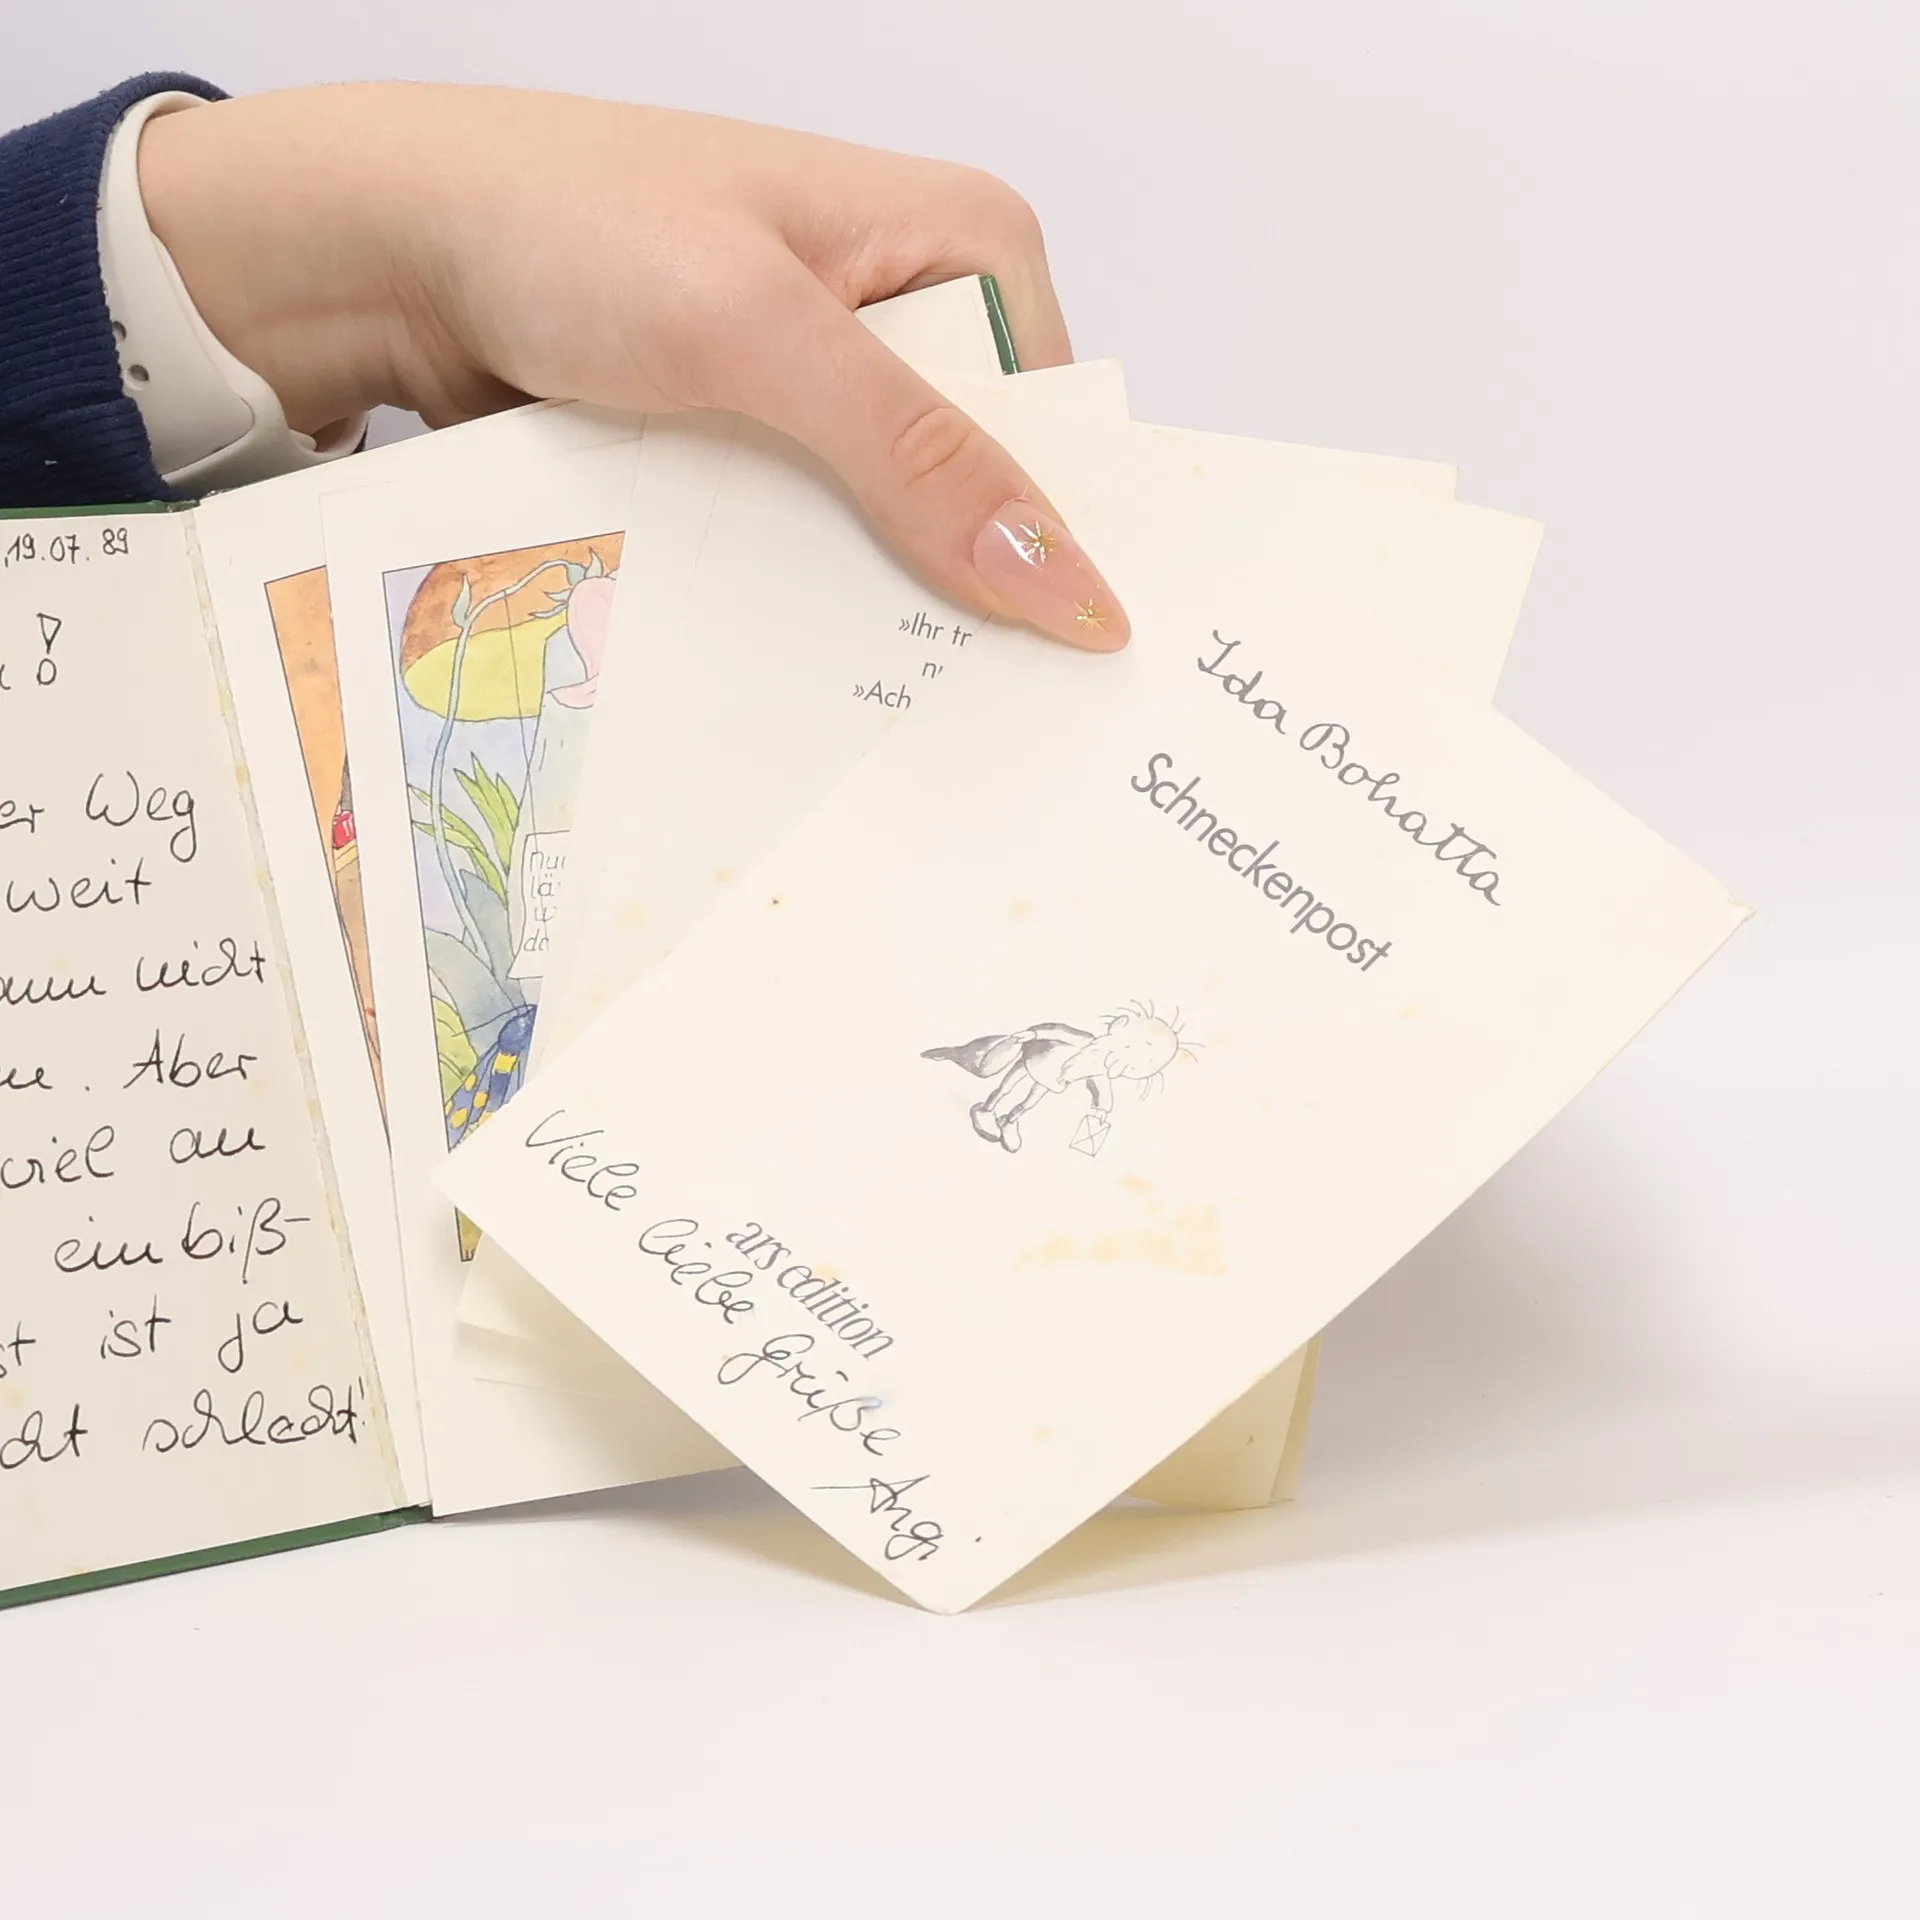 19.07.89
!
er Weg
weit
nicht
. Aber
viel an
ein biß-
ist ja
schlecht!
nu
lä
w
da
»Ihr tr
n'
»Ach
Ida Bohatta
Schneckenpost
ars edition
Viele liebe Grüße
Angi